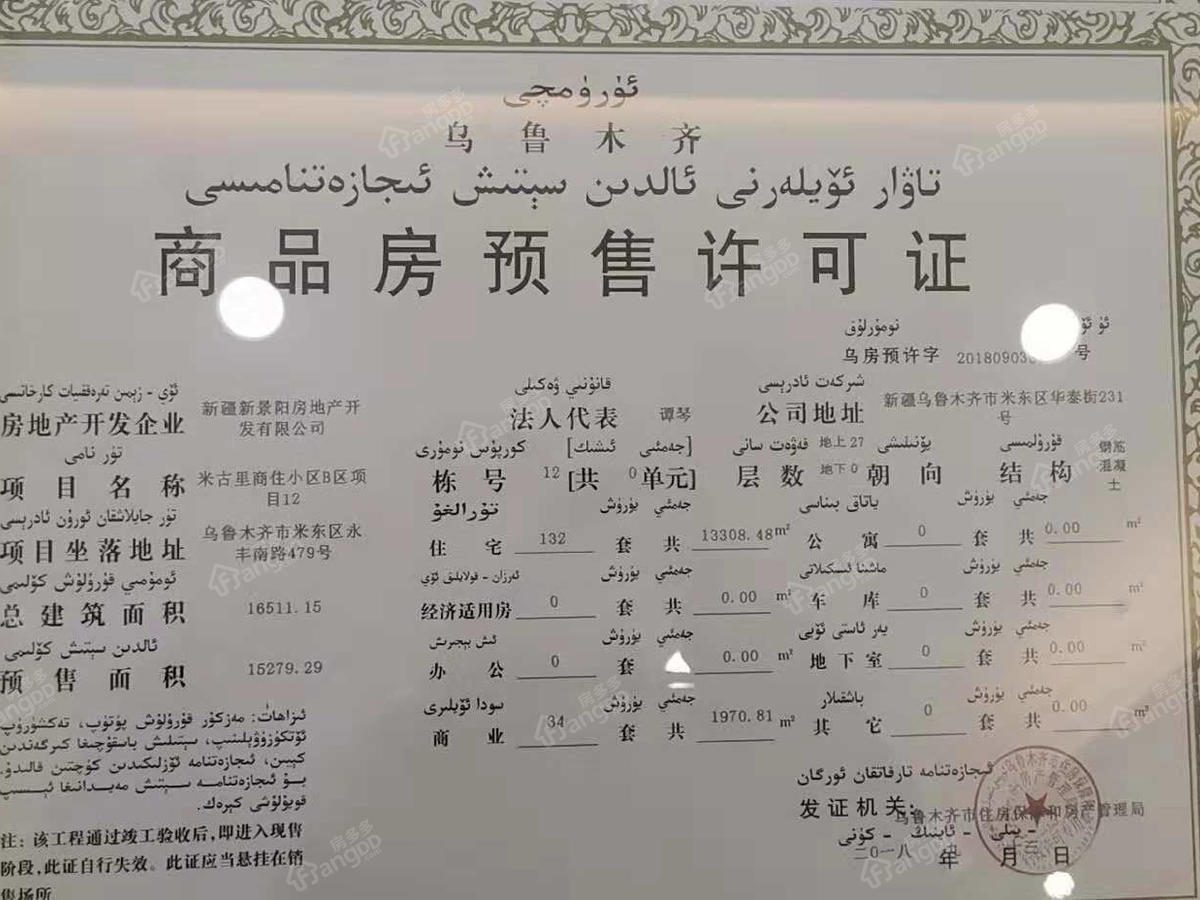 ئۈرۈمچى
乌鲁木齐
تاۋار ئۆيلەرنى ئالدىن سېتىش ئىجازەتنامىسى
商品房预售许可证
نومۇرلۇق
乌房预许字 20180903 号
ئۆي - زېمىن تەرەققىيات كارخانىسى
房地产开发企业 新疆新景阳房地产开发有限公司
قانۇنىي ۋەكىلى
法人代表 谭琴
شىركەت ئادرېسى
公司地址 新疆乌鲁木齐市米东区华泰街231号
تۈر نامى
项目名称 米古里商住小区B区项目12
كورپۇس نومۇرى [جەمئىي ئىشىك]
栋号 12 [共 0 单元]
قەۋەت سانى
层数 地上27 地下0
يۆنىلىشى
朝向
قۇرۇلمىسى
结构 钢筋混凝土
تۈر جايلاشقان ئورۇن ئادرېسى
项目坐落地址 乌鲁木齐市米东区永丰南路479号
تۇرالغۇ جەمئىي يۈرۈش
住宅 132 套 共 13308.48 m²
ياتاق بىناسى جەمئىي يۈرۈش
公寓 0 套 共 0.00 m²
ئومۇمىي قۇرۇلۇش كۆلىمى
总建筑面积 16511.15
ئەرزان - قولايلىق ئۆي جەمئىي يۈرۈش
经济适用房 0 套 共 0.00 m²
ماشىنا ئىسكىلاتى جەمئىي يۈرۈش
车库 0 套 共 0.00 m²
ئالدىن سېتىش كۆلىمى
预售面积 15279.29
ئىش بېجىرىش جەمئىي يۈرۈش
办公 0 套 0.00 m²
يەر ئاستى ئۆيى جەمئىي يۈرۈش
地下室 0 套 共 0.00 m²
سودا ئۆيلىرى جەمئىي يۈرۈش
商业 34 套 共 1970.81 m²
باشقىلار جەمئىي يۈرۈش
其它 0 套 共 0.00 m²
ئىزاھات: مەزكۇر قۇرۇلۇش پۈتۈپ، تەكشۈرۈپ
ئۆتكۈزۈۋېلىنىپ، سېتىلىش باسقۇچىغا كىرگەندىن
كېيىن، ئىجازەتنامە ئۆزلىكىدىن كۈچتىن قالىدۇ.
بۇ ئىجازەتنامە سېتىش مەيدانىغا ئېسىپ
قويۇلۇشى كېرەك.
注：该工程通过竣工验收后，即进入现售
阶段，此证自行失效。此证应当悬挂在销
售场所
ئىجازەتنامە تارقاتقان ئورگان
发证机关：乌鲁木齐市住房保障和房产管理局
- يىلى - ئاينىڭ - كۈنى
二〇一八 年 月 三 日
房多多
Fangdd